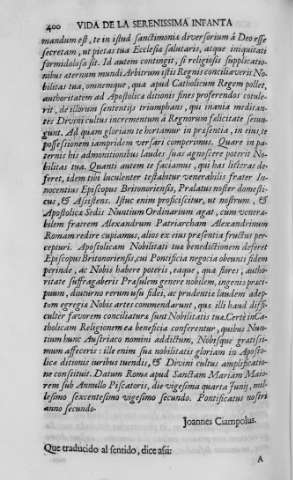 400 VIDA DE LA SERENISSIMA INFANTA
mandum est, te in istud sanctimoniæ diversorium à Deo esse
secretam, ut pietas tua Ecclesiæ salutaris, atque iniquitati
formidolosa sit. Id autem contingit, si religiosis supplicatio-
nibus æternum mundi Arbitrum istis Regnis conciliaveris No-
bilitas tua, omnemque, qua apud Catholicum Regem pollet,
authoritatem ad Apostolicæ ditionis fines proferendos contule-
rit, de illorum sententijs triumphans, qui inania meditan-
tes Divini cultus incrementum à Regnorum felicitate seiun-
gunt. Ad quam gloriam te hortamur in præsentia, in eius te
possessionem iampridem versari comperimus. Quare in pa-
ternis his admonitionibus laudes suas agnoscere poterit No-
bilitas tua. Quanti autem te faciamus, qui has litteras de-
feret, idem tibi luculenter testabitur venerabilis frater In-
nocentius Episcopus Britonoriensis, Prælatus noster domesti-
cus, & Assistens. Istuc enim proficiscitur, ut nostrum, &
Apostolicæ Sedis Nuntium Ordinarium agat, cum venera-
bilem fratrem Alexandrum Patriarcham Alexandrinum
Romam redire cupiamus, alios ex eius præsentia fructus per-
cepturi. Apostolicam Nobilitati tuæ benedictionem deferet
Episcopus Britonoriensis, cui Pontificia negocia obeunti fidem
perinde, ac Nobis habere poteris, eaque, qua flores, autho-
ritate suffragaberis Præsulem genere nobilem, ingenio præci-
puum, diuturno rerum usu fidei, ac prudentiæ laudem adep-
tum egregiæ Nobis artes commendarunt, quæ illi haud diffi-
culter favorem conciliaturæ sunt Nobilitatis tuæ. Certè in Ca-
tholicam Religionem ea beneficia conferentur, quibus Nun-
tium hunc Austriaco nomini addictum, Nobisque gratissi-
mum affeceris: ille enim suæ nobilitatis gloriam in Aposto-
licæ ditionis iuribus tuendis, & Divini cultus amplificatio-
ne constituit. Datum Romæ apud Sanctam Mariam Maio-
rem sub Annullo Piscatoris, die vigesima quarta Junij, mil-
lesimo sexcentesimo vigesimo secundo. Pontificatus nostri
anno secundo.
Joannes Ciampolus.
Que traducido al sentido, dice assi:
A